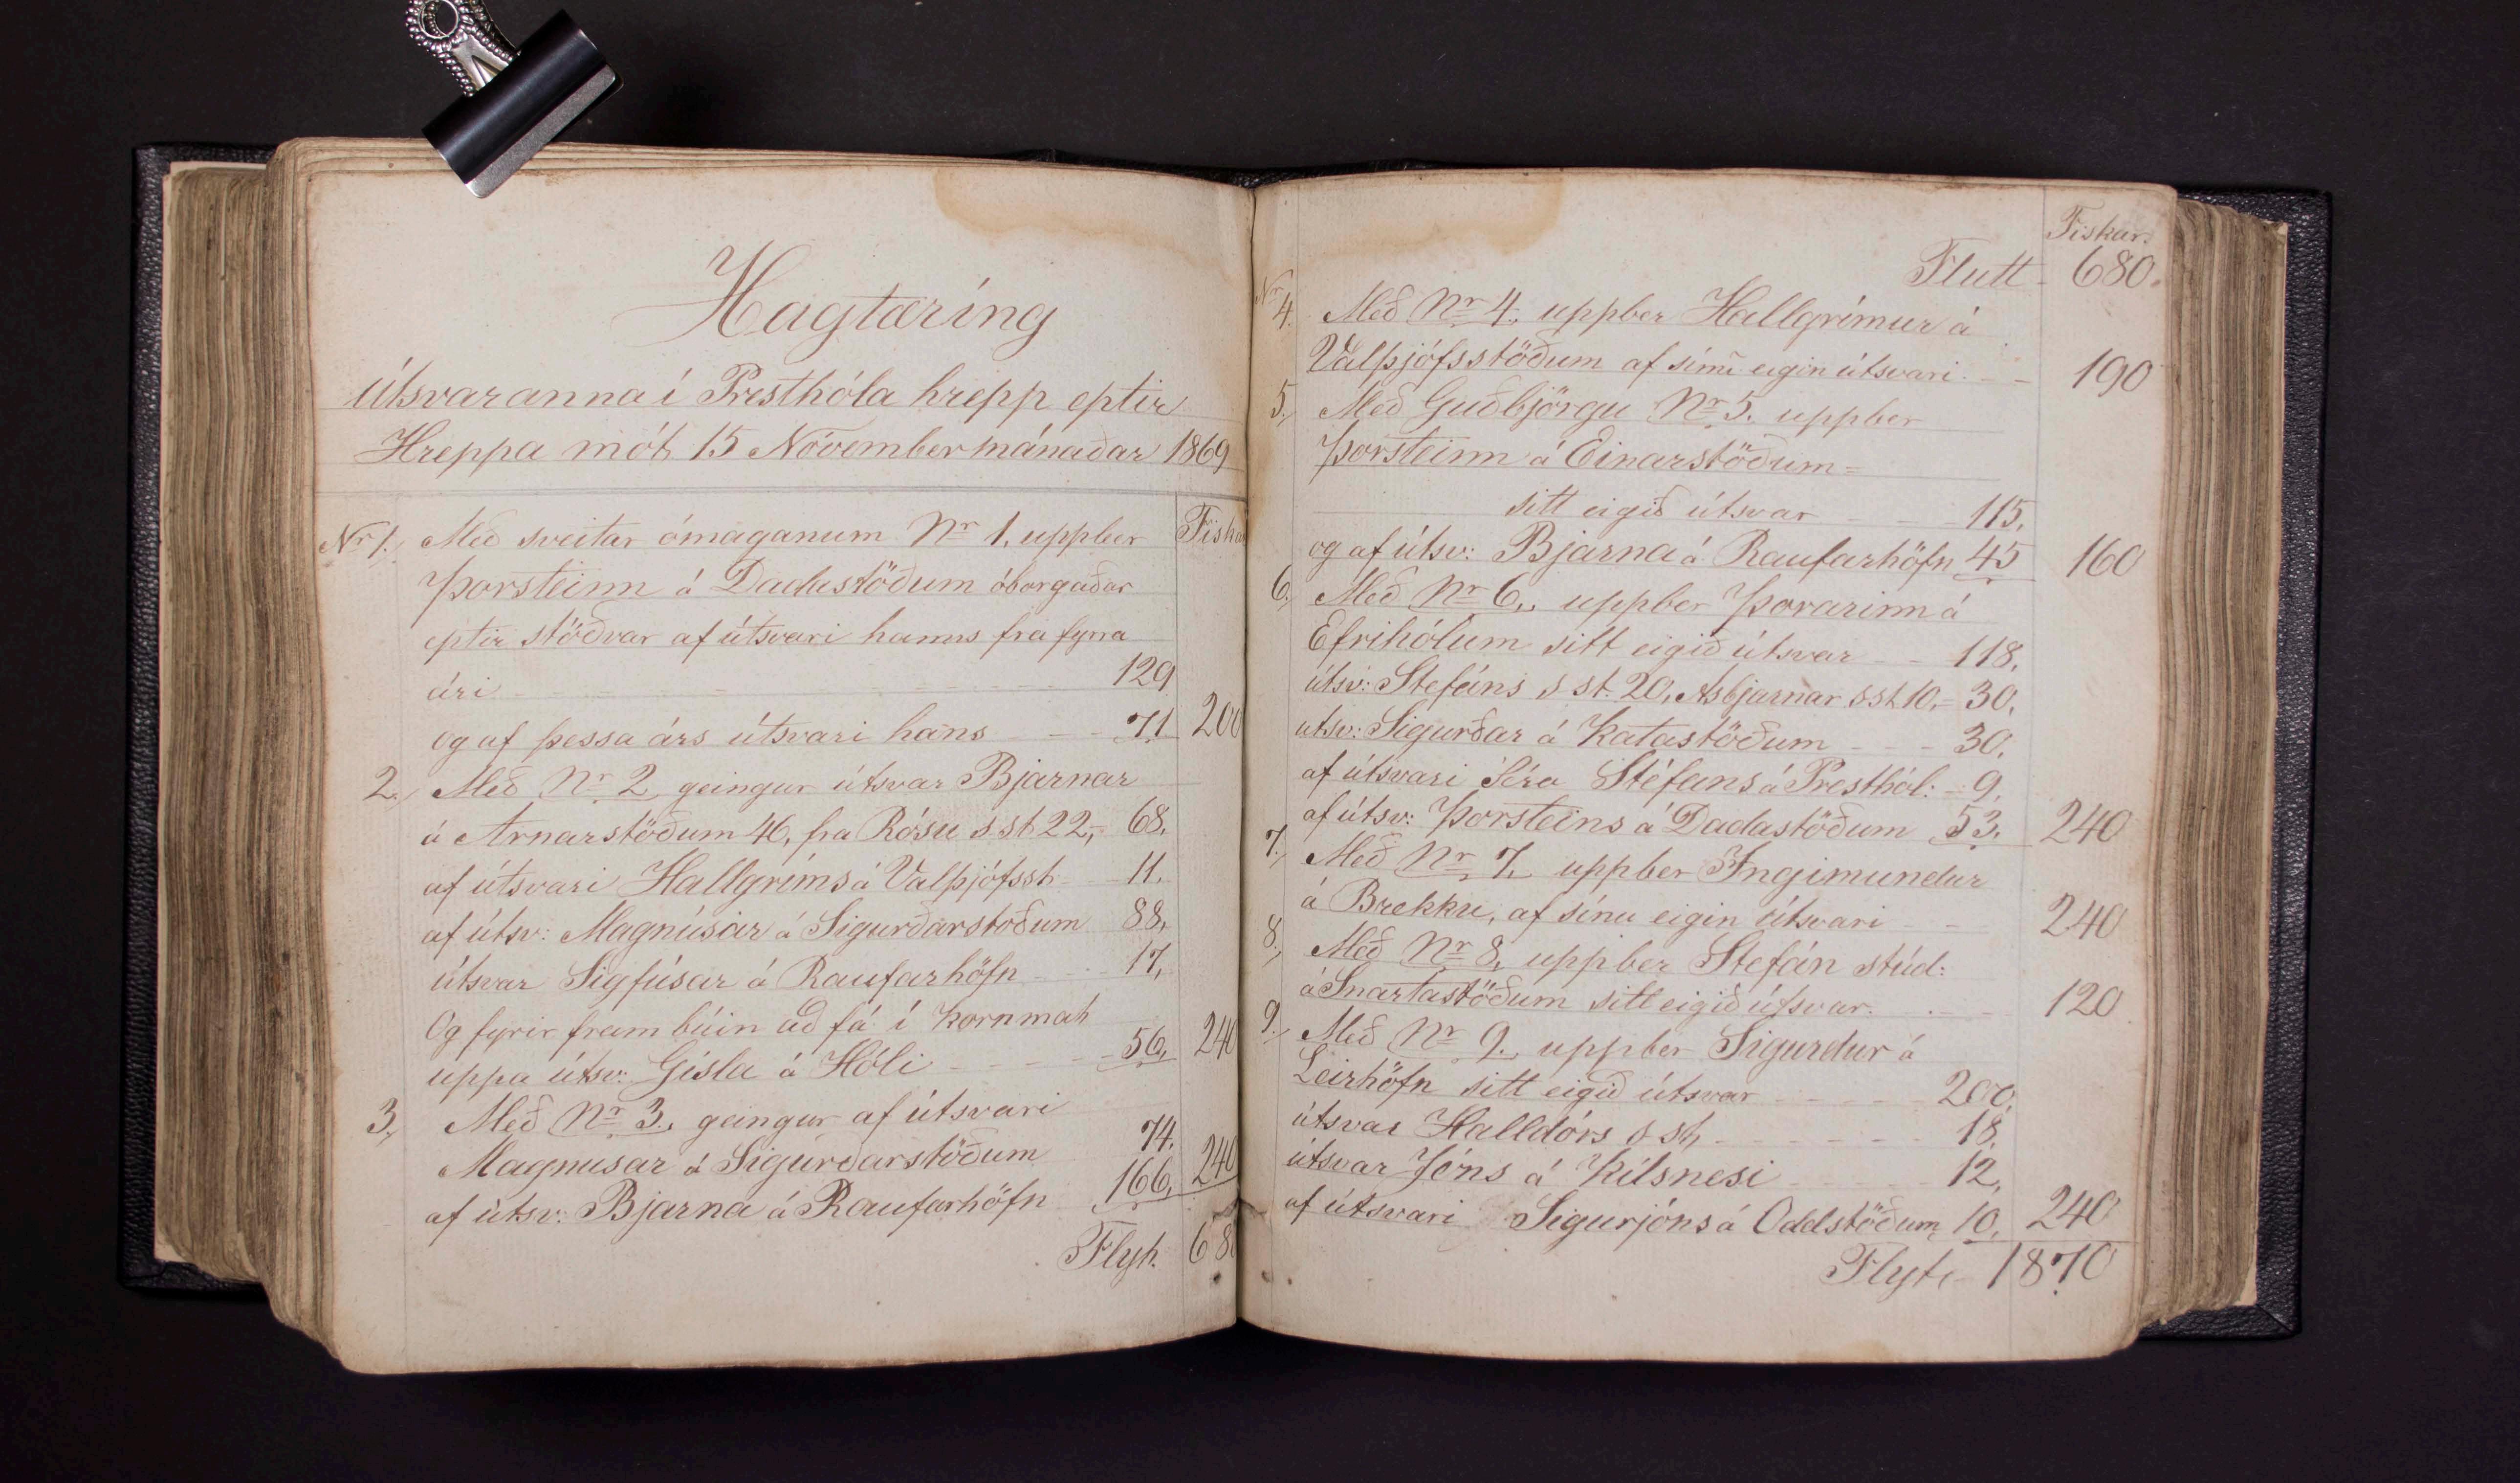 Hagtæring
útsvaranna í Presthóla hrepp eptir
Hreppa mót 15 Nóvembermánaðar 1869
Fiskar
Nr 1. Með sveitar ómaganum Nr 1, uppber
Þorsteinn á Dadastöðum óborgaðar
eptir stöðvar af útsvari hanns fra fyrra
ári 129
og af þessa árs útsvari hans 71 200
2. Með Nr 2 geingur útsvar Bjarnar
á Arnarstöðum 46, fra Rósu s.st 22, 68.
af útsvari Hallgríms á Valþjófsst 11.
af útsv: Magnúsar á Sigurðarstoðum 88,
útsvar Sigfúsar á Raufarhöfn 17,
Og fyrir fram búin að fá í kornmat
uppa útsv: Gísla á Hóli 56, 240
3. Með Nr 3. geingur af útsvari
Magnusar á Sigurðarstöðum 74.
af útsv: Bjarna á Raufarhöfn 166, 240
Flyt. 680
Fiskar.
Flutt 680.
Nr 4. Með Nr 4, uppber Hallgrímur á
Valþjófsstöðum af sínu eigin útsvari 190
5. Með Guðbjörgu Nr 5. uppber
Þorsteinn á Einarstöðum =
sitt eigið útsvar 115,
og af útsv: Bjarna á Raufarhöfn 45 160
6. Með Nr 6, uppber Þorarinn á
Efrihólum sitt eigið útsvar 118,
útsv: Stefáns s st. 20, Asbjarnar s.st 10, = 30,
utsv: Sigurðar á Katastöðum 30,
af útsvari Séra Stefans á Presthól: 9,
af útsv: Þorsteins á Dadastöðum 53. 240
7. Með Nr 7, uppber Ingimundur
á Brekku, af sínu eigin útsvari 240
8. Með Nr 8, uppber Stefán stúd:
á Snartastöðum sitt eigið útsvar. 120
9. Með Nr 9. uppber Sigurdur á
Leirhöfn sitt eigið útsvar 200,
útsvar Halldórs s st, 18,
útsvar Jóns á Kílsnesi 12,
af útsvari Sigurjóns á Oddstöðum 10, 240
Flyt. 1870